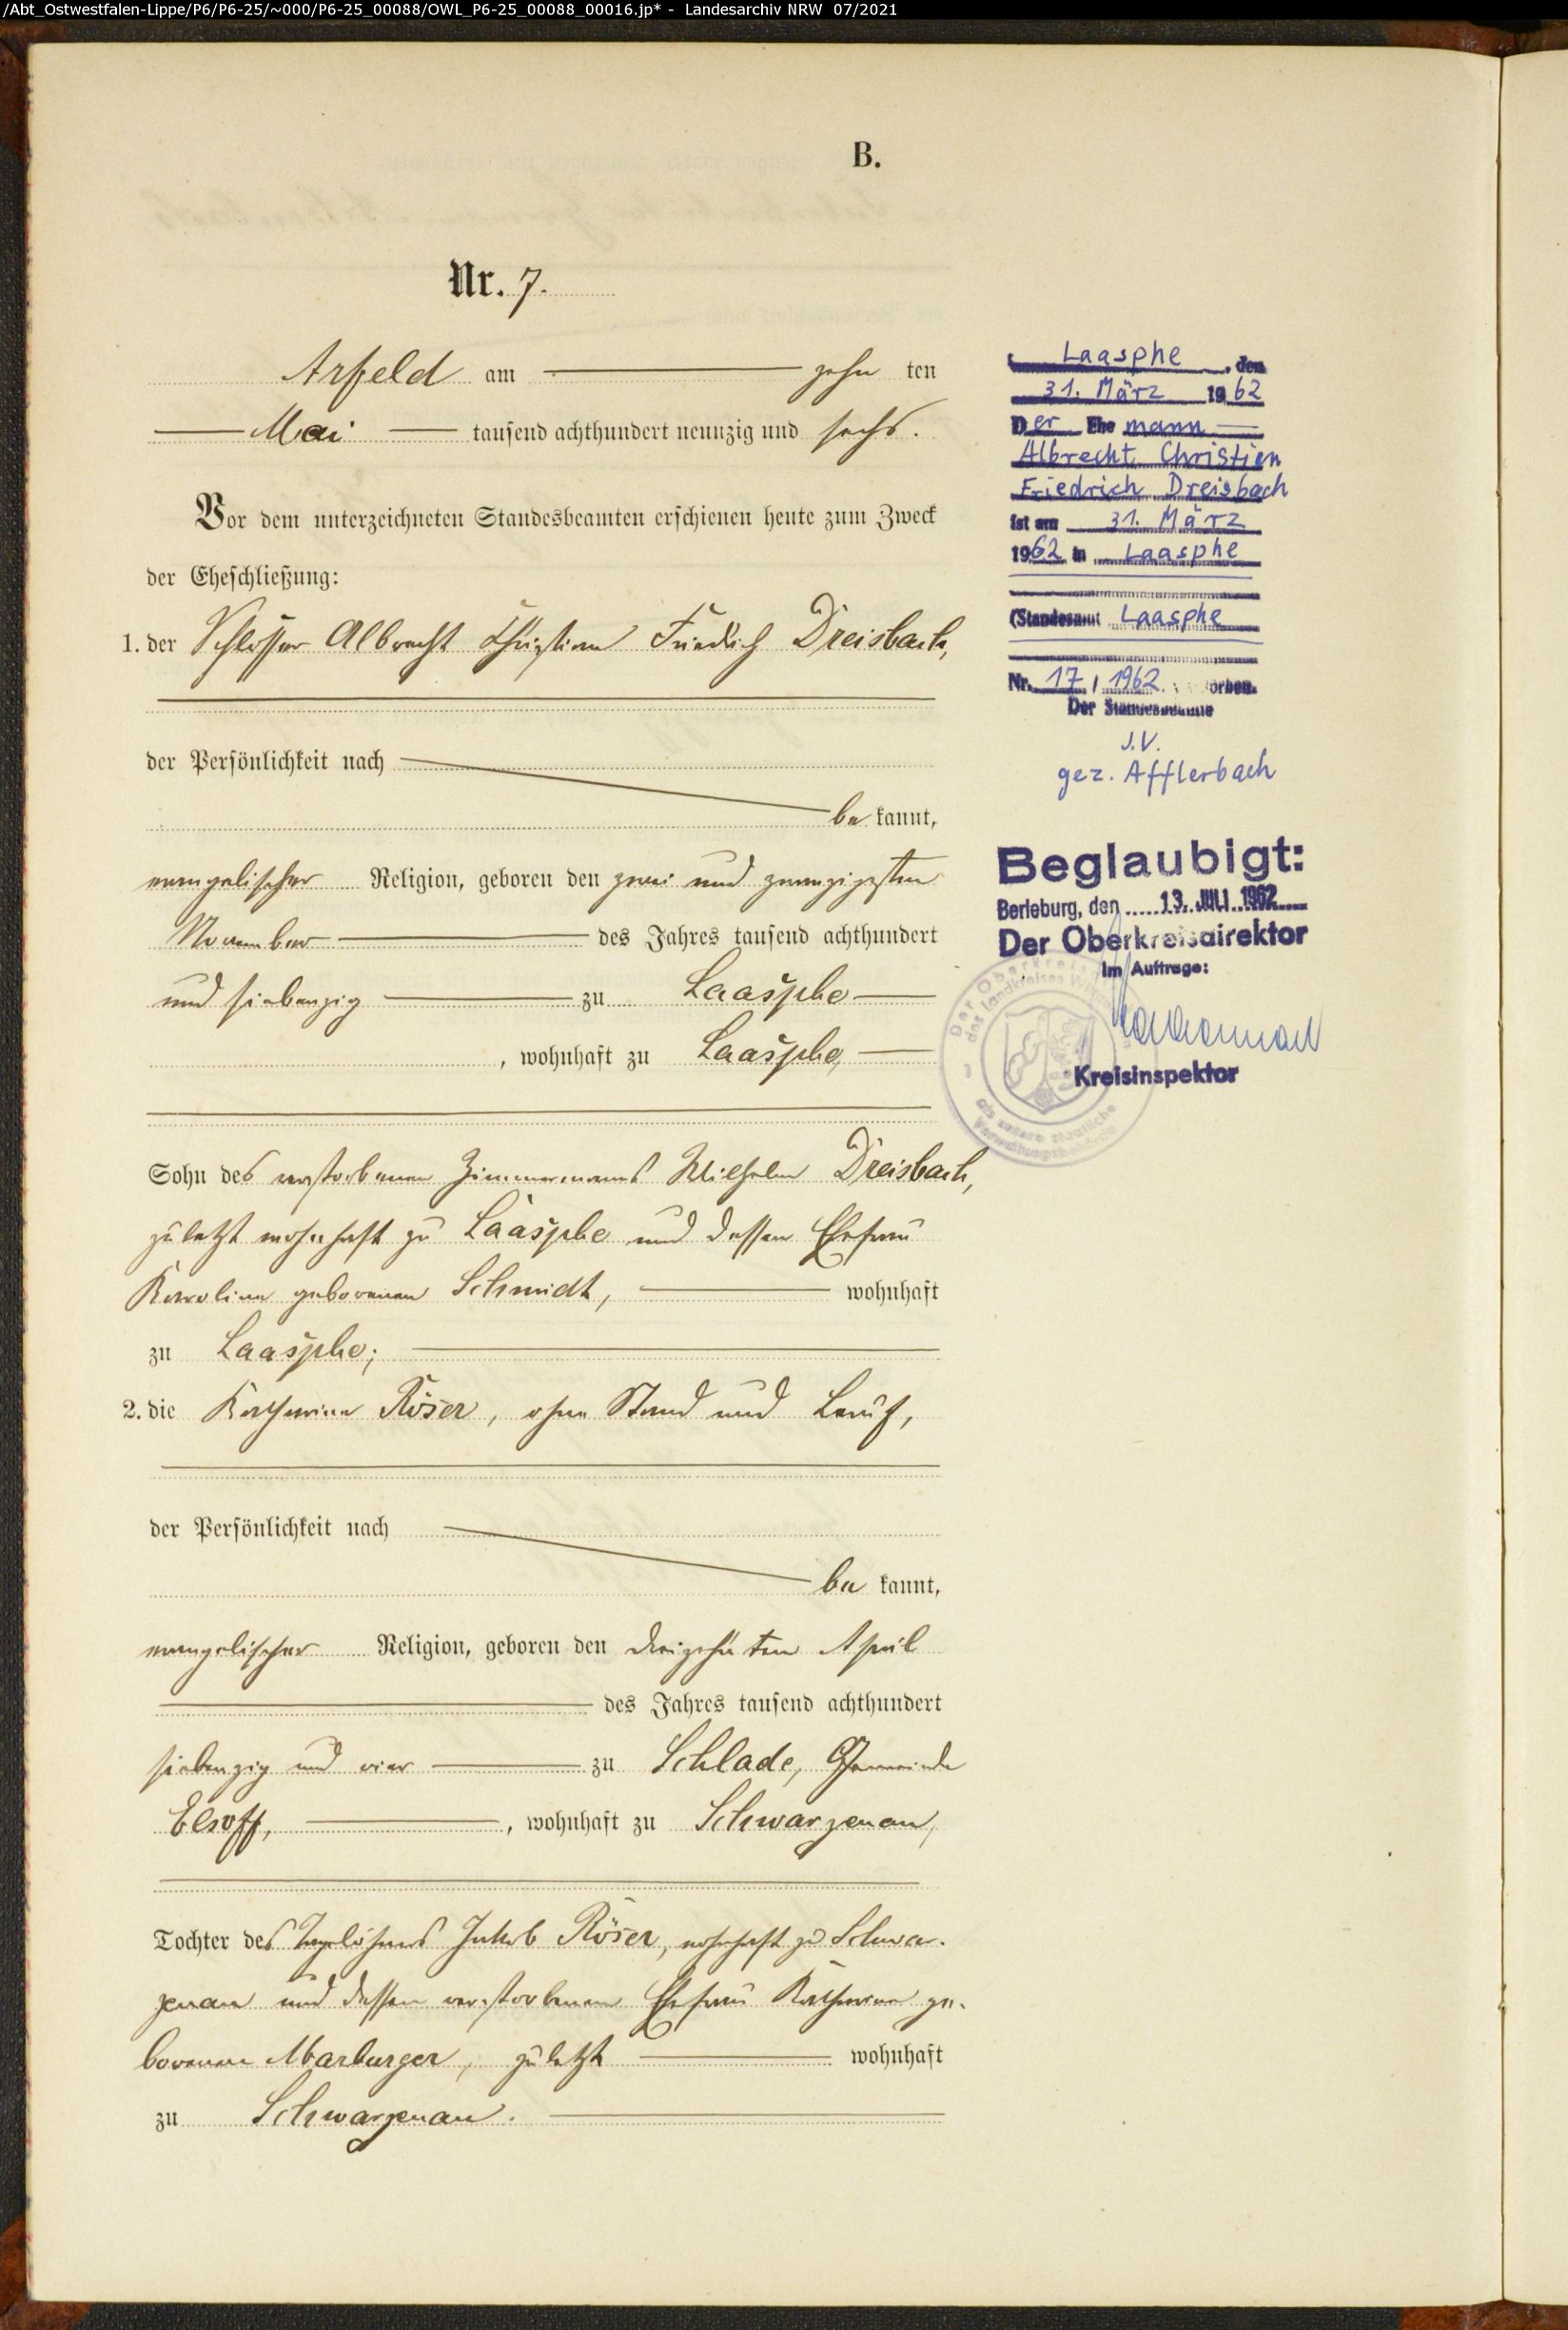 /Abt_Ostwestfalen-Lippe/P6/P6-25/~000/P6-25_00088/OWL_P6-25_00088_00016.jp* - Landesarchiv NRW 07/2021
B.
Nr. 7.
Arfeld am zehn ten
Mai tausend achthundert neunzig und sechs.
Vor dem unterzeichneten Standesbeamten erschienen heute zum Zweck
der Eheschließung:
1. der Schlosser Albrecht Christian Friedrich Dreisbach,
der Persönlichkeit nach
be kannt,
evangelischer Religion, geboren den zwei und zwanzigsten
November des Jahres tausend achthundert
und siebenzig zu Laasphe
, wohnhaft zu Laasphe,
Sohn des verstorbenen Zimmermanns Wilhelm Dreisbach,
zuletzt wohnhaft zu Laasphe und dessen Ehefrau
Karoline geborenen Schmidt, wohnhaft
zu Laasphe;
2. die Katharine Röser, ohne Stand und Beruf,
der Persönlichkeit nach
be kannt,
evangelischer Religion, geboren den dreizehnten April
des Jahres tausend achthundert
siebenzig und vier zu Schlade, Gemeinde
Elsoff, , wohnhaft zu Schwarzenau,
Tochter des Tagelöhners Jakob Röser, wohnhaft zu Schwar-
zenau und dessen verstorbenen Ehefrau Katharine ge-
borenen Marburger, zuletzt wohnhaft
zu Schwarzenau.
Laasphe, den
31. März 1962
Der Ehe mann
Albrecht Christian
Friedrich Dreisbach
ist am 31. März
1962 in Laasphe
(Standesamt Laasphe
Nr. 17 / 1962 orben.
Der Standesbeamte
J.V.
gez. Afflerbach
Beglaubigt:
Berleburg, den 13. JULI 1962
Der Oberkreisdirektor
Im Auftrage:
Kreisinspektor
Der Oberkreis
des Landkreises
als untere staatliche
Verwaltungsbehörde